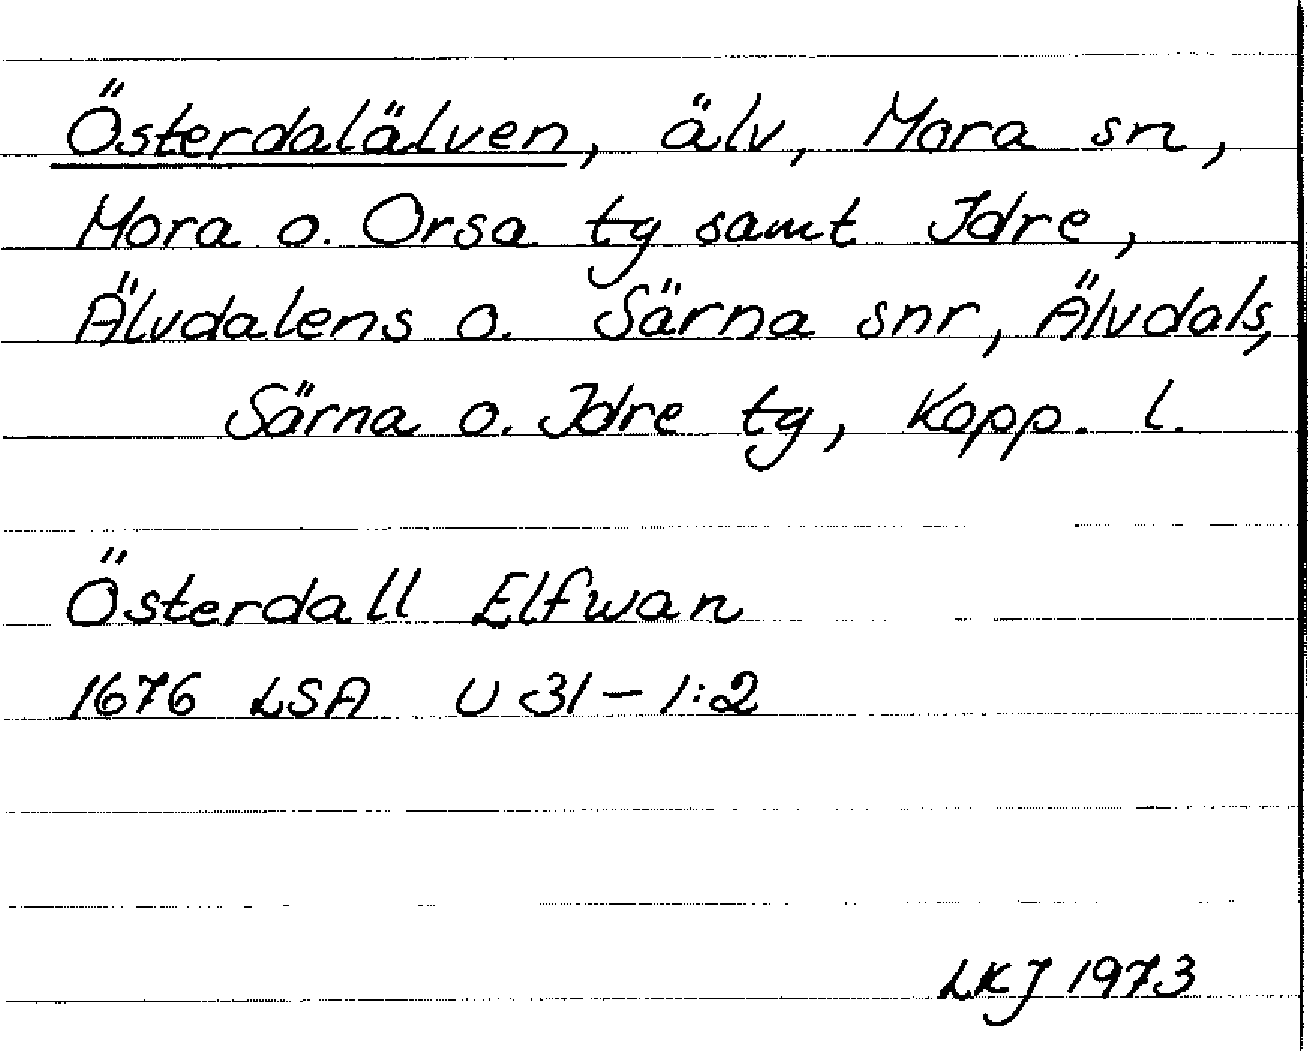 Österdalälven, älv, Mora sn,
Mora o. Orsa tg samt Idre,
Älvdalens o. Särna snr, Älvdals,
Särna o. Idre tg, Kopp. l.
Österdall Elfwan
1676 LSA U 31-1:2
LKJ 1973